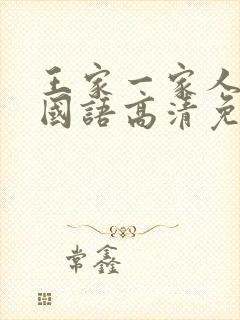 王家一家人
國語高清免
常鑫